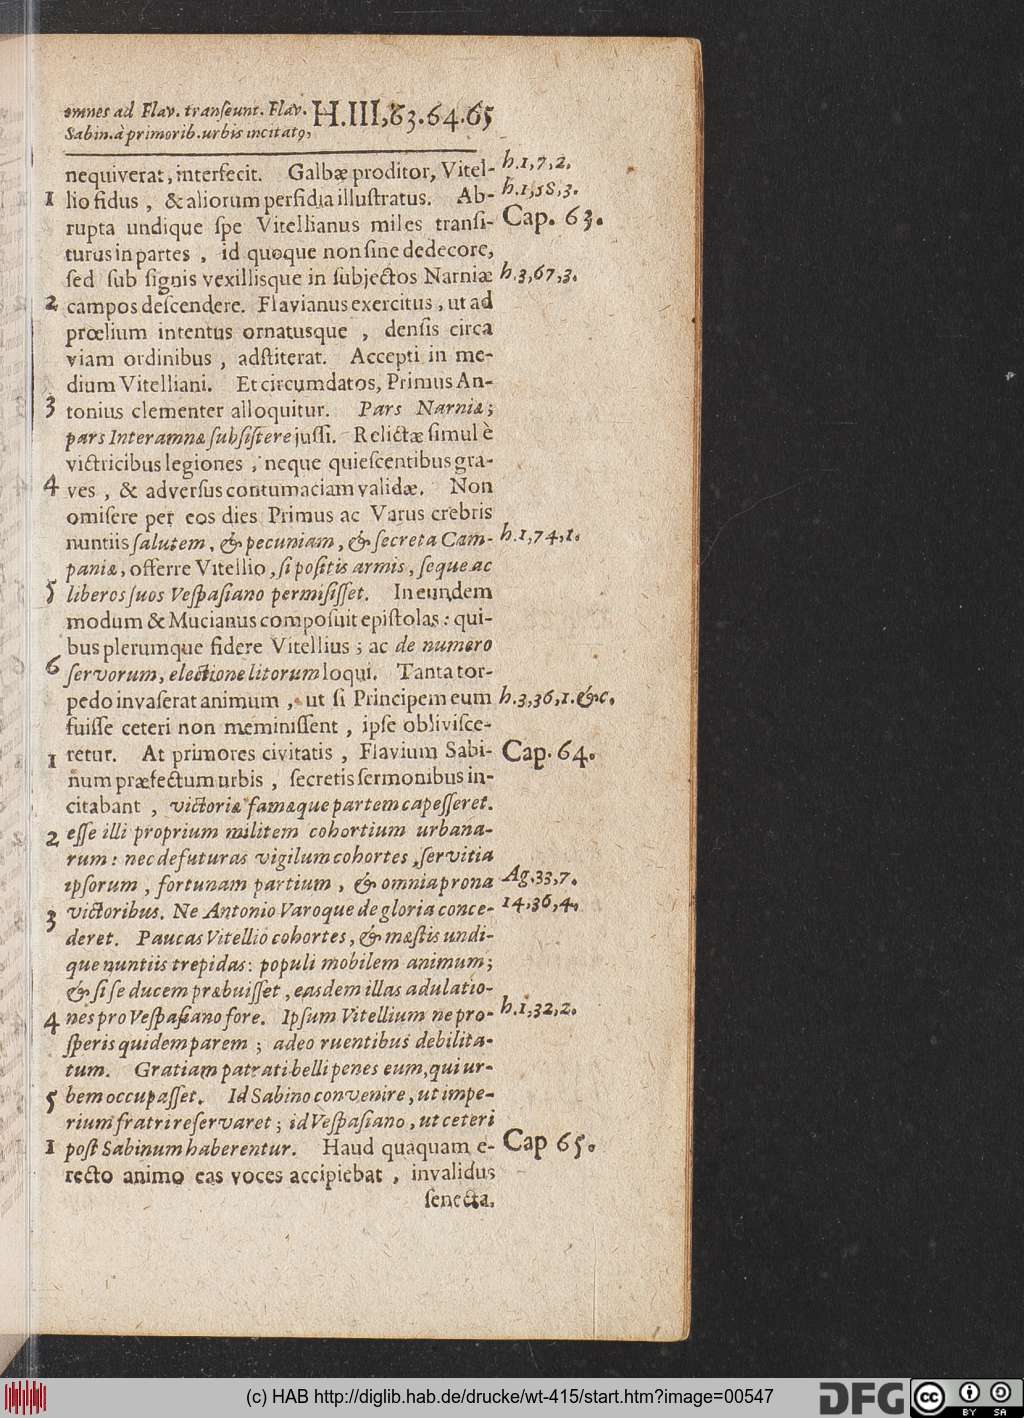 omnes ad Flav. tranſeunt. Flav. H.III,63.64.65
Sabin. à primorib. urbis incitatꝰ,
nequiverat, interfecit. Galbæ proditor, Vitel- h.1,7,2.
1 lio fidus, & aliorum perfidia illuſtratus. Ab- h.1,58,3.
rupta undique ſpe Vitellianus miles tranſi- Cap. 63.
turus in partes, id quoque non ſine dedecore,
ſed ſub ſignis vexillisque in ſubjectos Narniæ h.3,67,3.
2 campos deſcendere. Flavianus exercitus, ut ad
prœlium intentus ornatusque, denſis circa
viam ordinibus, adſtiterat. Accepti in me-
dium Vitelliani. Et circumdatos, Primus An-
3 tonius clementer alloquitur. Pars Narniæ;
pars Interamnæ ſubſiſtere juſſi. Relictæ ſimul è
victricibus legiones, neque quieſcentibus gra-
4 ves, & adverſus contumaciam validæ. Non
omiſere per eos dies Primus ac Varus crebris
nuntiis ſalutem, & pecuniam, & ſecreta Cam- h.1,74,1.
paniæ, offerre Vitellio, ſi poſitis armis, ſeque ac
5 liberos ſuos Veſpaſiano permiſiſſet. In eundem
modum & Mucianus compoſuit epiſtolas: qui-
bus plerumque fidere Vitellius; ac de numero
6 ſervorum, electione litorum loqui. Tanta tor-
pedo invaſerat animum, ut ſi Principem eum h.3,36,1.&c.
fuiſſe ceteri non meminiſſent, ipſe obliviſce-
1 retur. At primores civitatis, Flavium Sabi- Cap. 64.
num præfectum urbis, ſecretis ſermonibus in-
citabant, victoriæ famæque partem capeſſeret.
2 eſſe illi proprium militem cohortium urbana-
rum: nec defuturas vigilum cohortes, ſervitia
ipſorum, fortunam partium, & omnia prona Ag.33,7.
3 victoribus. Ne Antonio Varoque de gloria conce- 14,36,4.
deret. Paucas Vitellio cohortes, & mæſtis undi-
que nuntiis trepidas: populi mobilem animum;
& ſi ſe ducem præbuiſſet, easdem illas adulatio-
4 nes pro Veſpaſiano fore. Ipſum Vitellium ne pro- h.1,32,2.
ſperis quidem parem; adeo ruentibus debilita-
tum. Gratiam patrati belli penes eum, qui ur-
5 bem occupaſſet. Id Sabino convenire, ut impe-
rium fratri reſervaret; id Veſpaſiano, ut ceteri
1 poſt Sabinum haberentur. Haud quaquam e- Cap 65.
recto animo eas voces accipiebat, invalidus
ſenecta.
(c) HAB http://diglib.hab.de/drucke/wt-415/start.htm?image=00547
DFG
cc BY SA